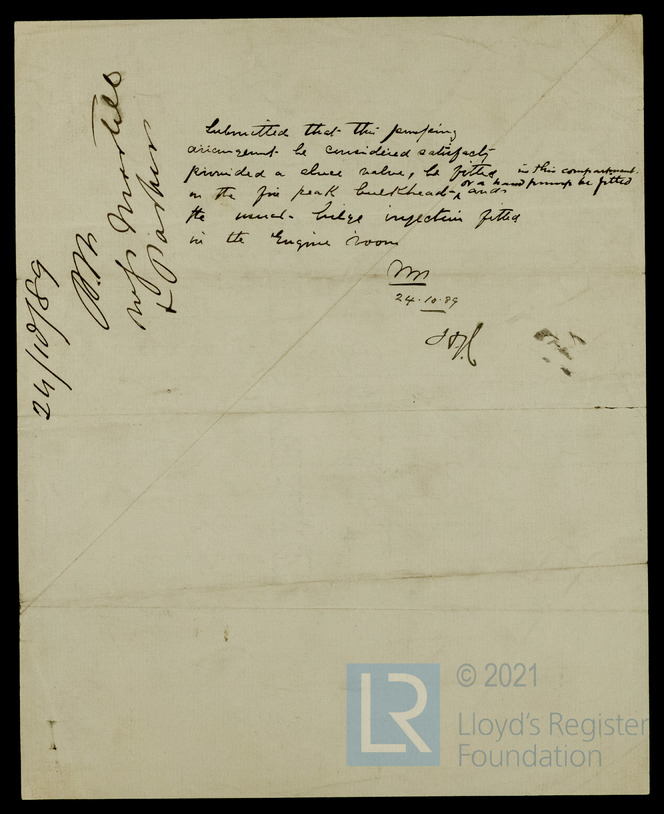 Submitted that this pumping
arrangemt be considered satisfacty
provided a sluce valve, be fitted
in the fore peak bulkhead, or a hand pump be fitted in this compartment. and
the usual bilge injection fitted
in the Engine room
24.10.89
24/10/89
Messrs
&
LR
© 2021
Lloyd's Register
Foundation